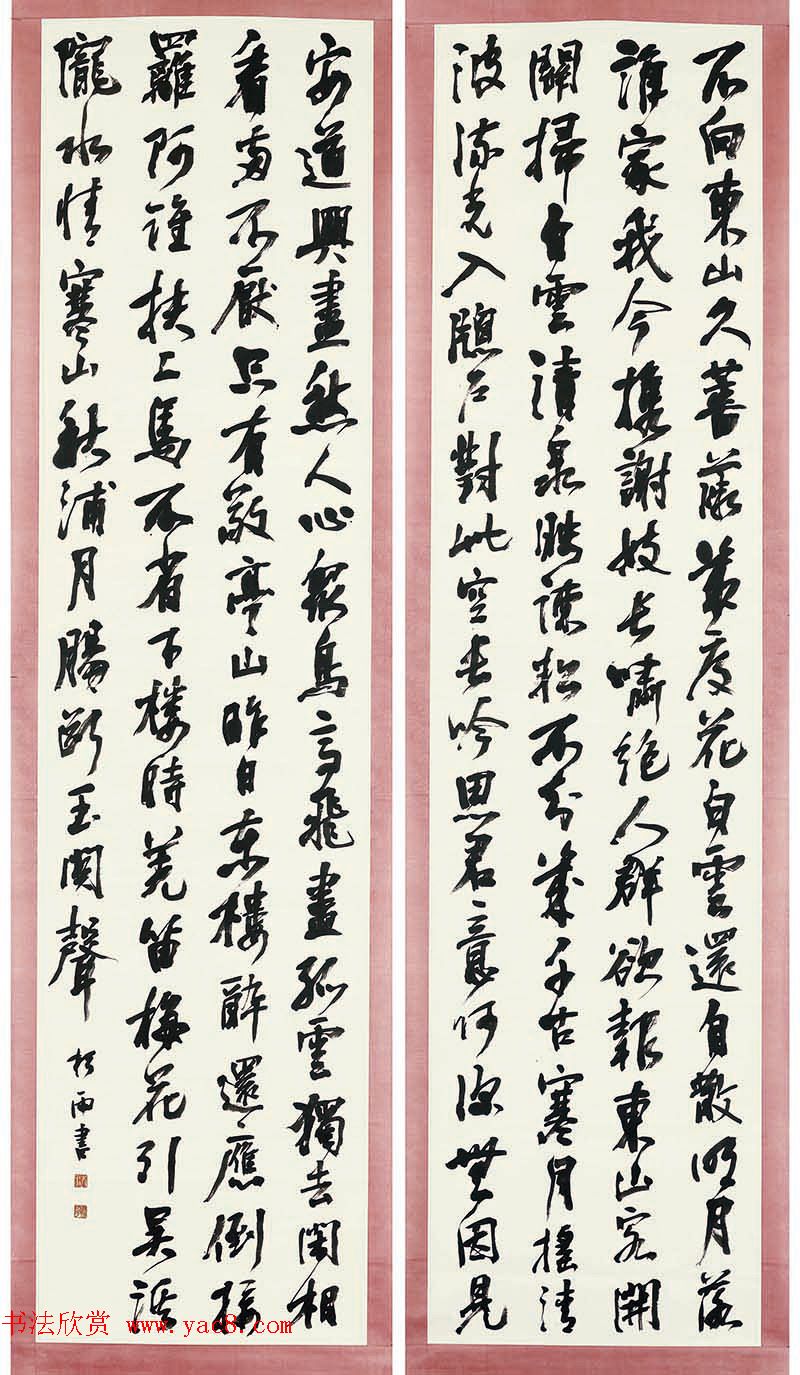 不向東山久薔薇幾度花白雲還自散明月落
誰家我今攜謝妓長嘯絕人群欲報東山客開
關掃白雲清泉映疎松不知幾千古寒月搖清
波流光入牕戶對此空長吟思君意何深無因見
安道興盡愁人心眾鳥高飛盡孤雲獨去閑相
看兩不厭只有敬亭山昨日東樓醉還應倒接
羅阿誰扶上馬不省下樓時羌笛梅花引吳溪
隴水情寒山秋浦月腸斷玉關聲
雨書
书法欣赏 www.yac8.com